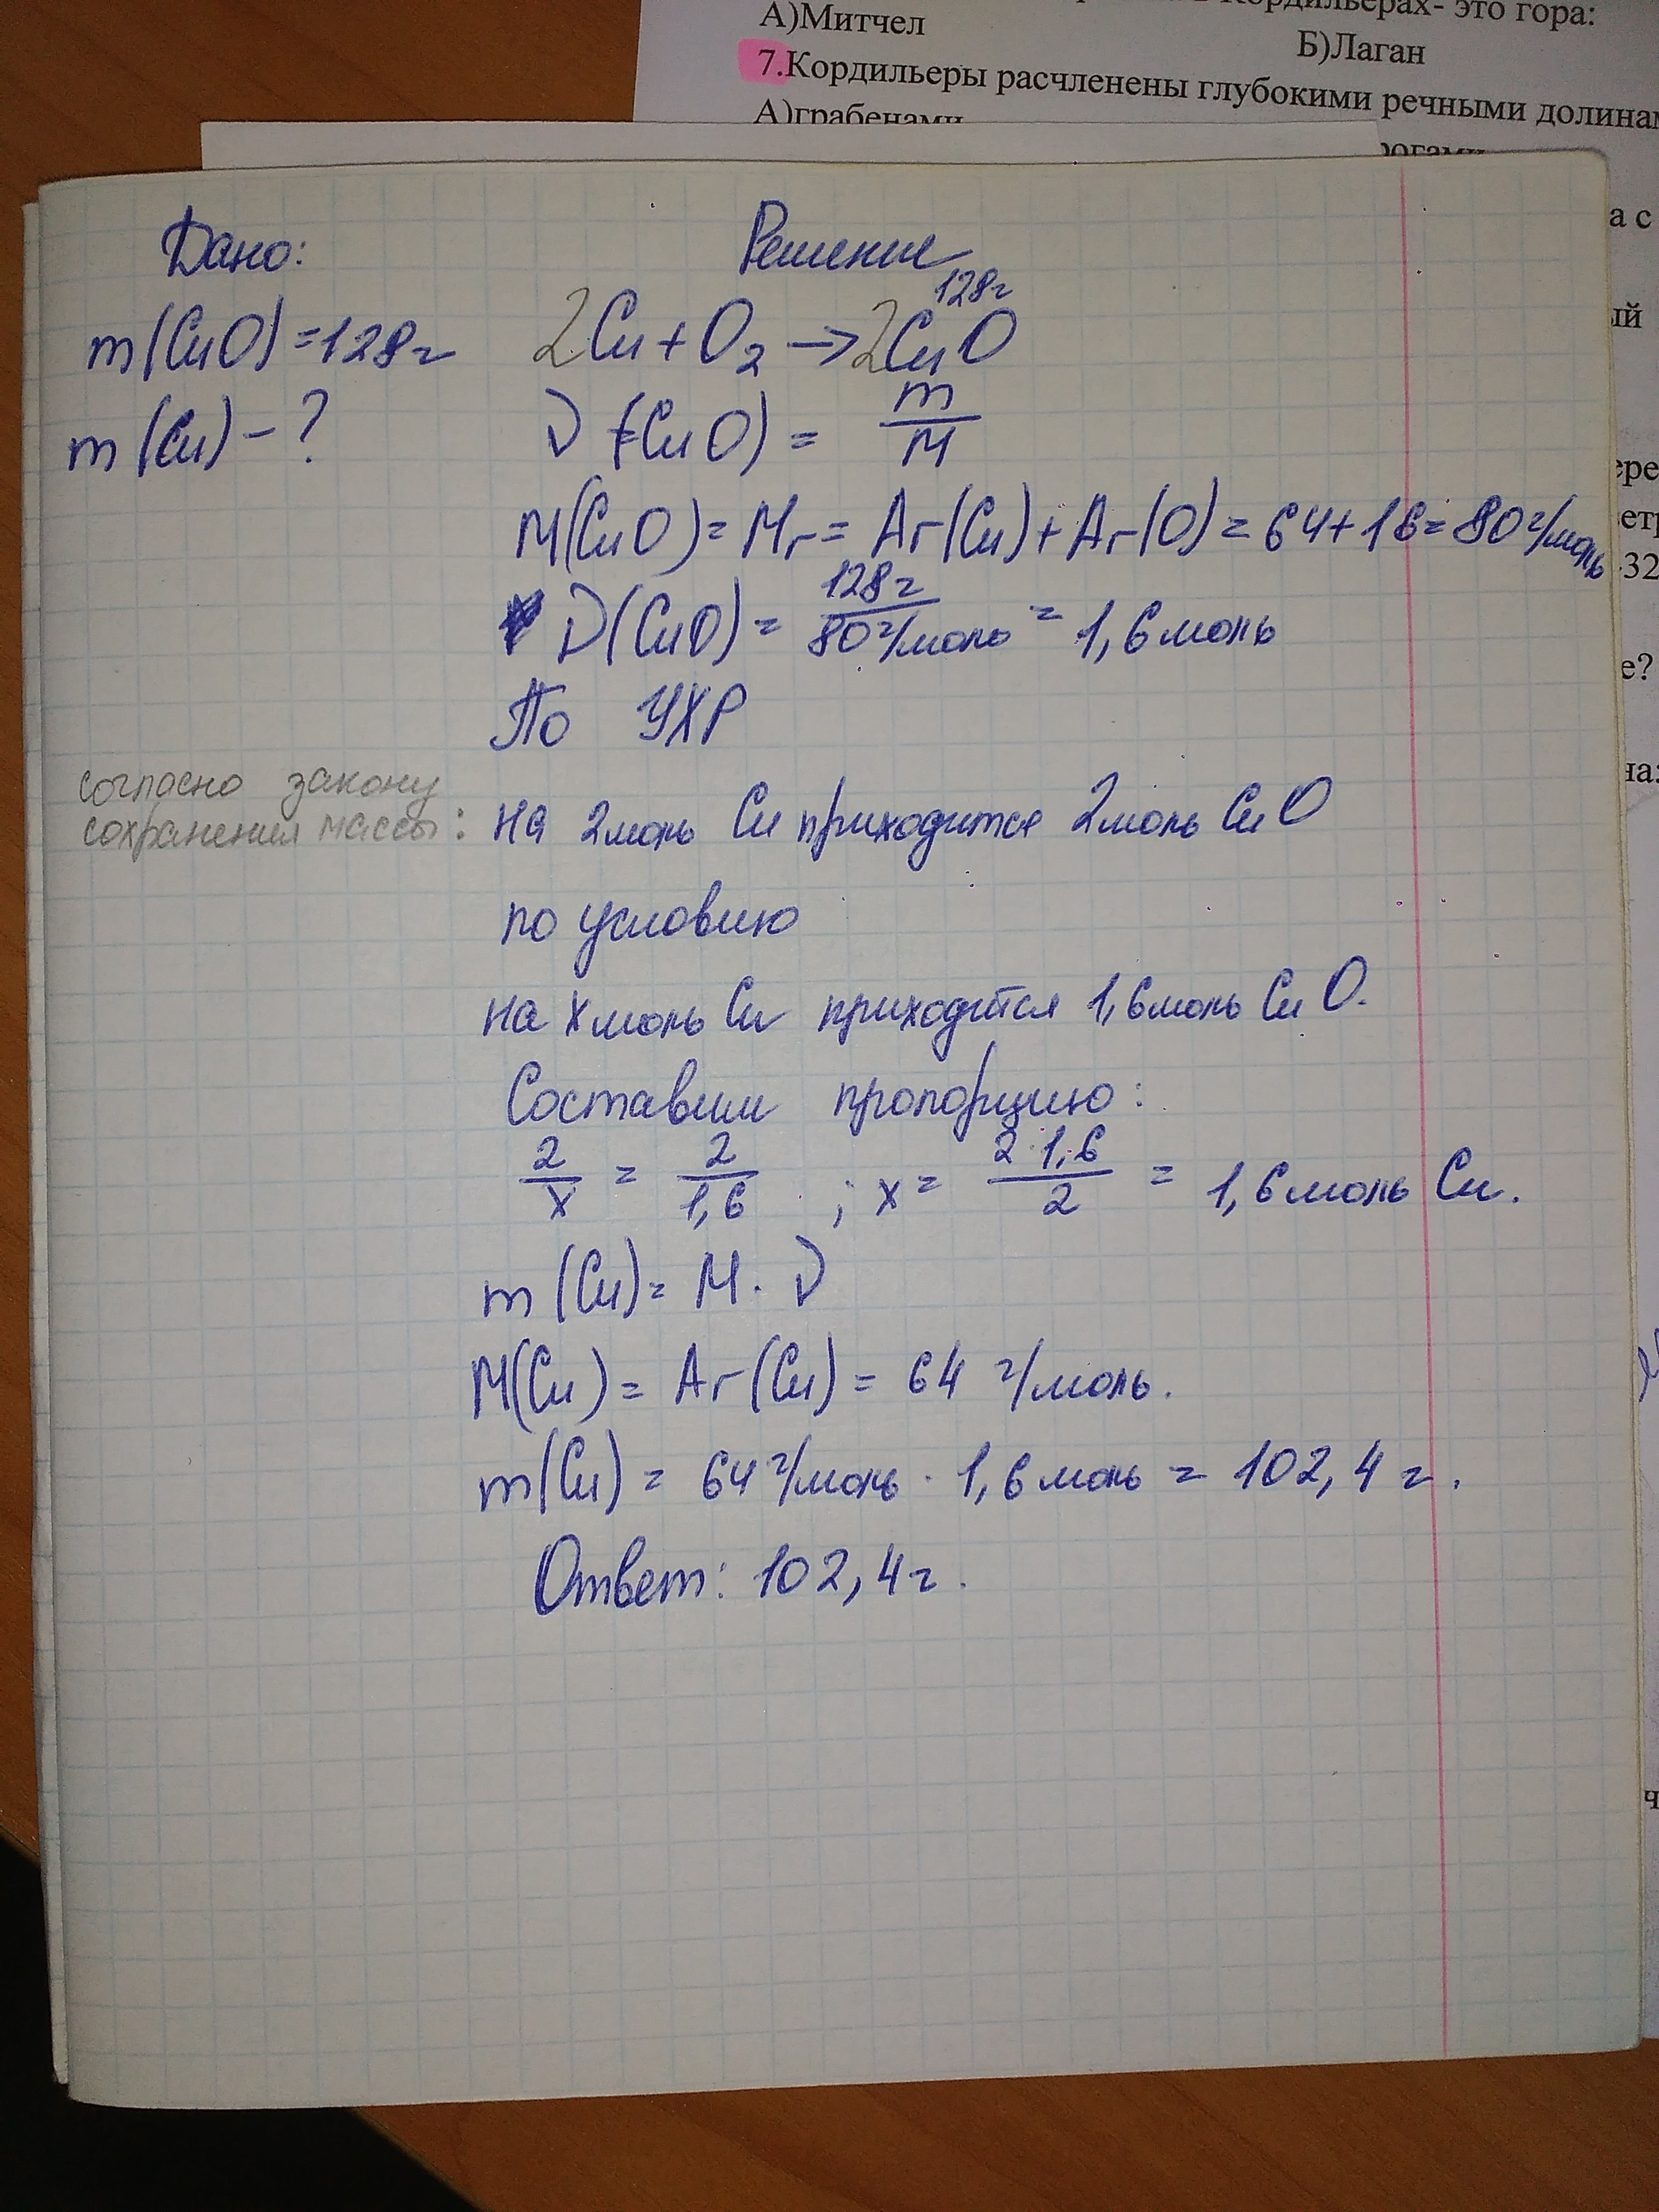 Кордильерах- это гора:
А)Митчел
Б)Лаган
7.Кордильеры расчленены глубокими речными
А)грабенами
а с
Дано:
Решение
128г
m(CuO)=128г
2Cu+O₂→2CuO
m(Cu)-?
ν(CuO) = m/M
M(CuO)=Mr=Ar(Cu)+Ar(O)=64+16=80г/моль
ν(CuO)= 128г/80г/моль = 1,6моль
По УХР
согласно закону
сохранения массы:
на 2моль Cu приходится 2моль CuO
по условию
на x моль Cu приходится 1,6моль CuO.
Составим пропорцию:
2/x = 2/1,6 ; x= 2·1,6/2 = 1,6моль Cu.
m(Cu)= M·ν
M(Cu)=Ar(Cu)=64 г/моль.
m(Cu)=64г/моль·1,6моль=102,4г.
Ответ: 102,4г.